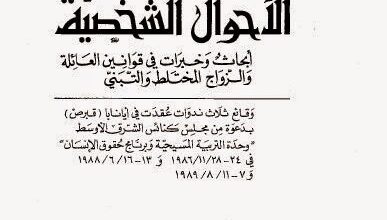 الأحوال الشخصية
أبحاث وخبرات في قوانين العائلة
والزواج المختلط والتبني
وقائع ثلاث ندوات عُقدت في إيانابا (قبرص)
بدعوة من مجلس كنائس الشرق الأوسط
"وحدة التربية المسيحية وبرنامج حقوق الإنسان"
في ٢٤-٢٨/١١/١٩٨٦ و ١٣-١٦/٦/١٩٨٨
و ٧-١١/٨/١٩٨٩